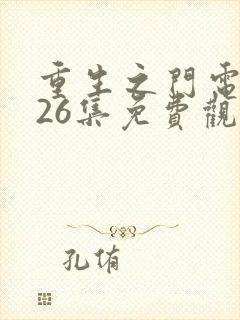 重生之門電
26集免費觀
孔侑